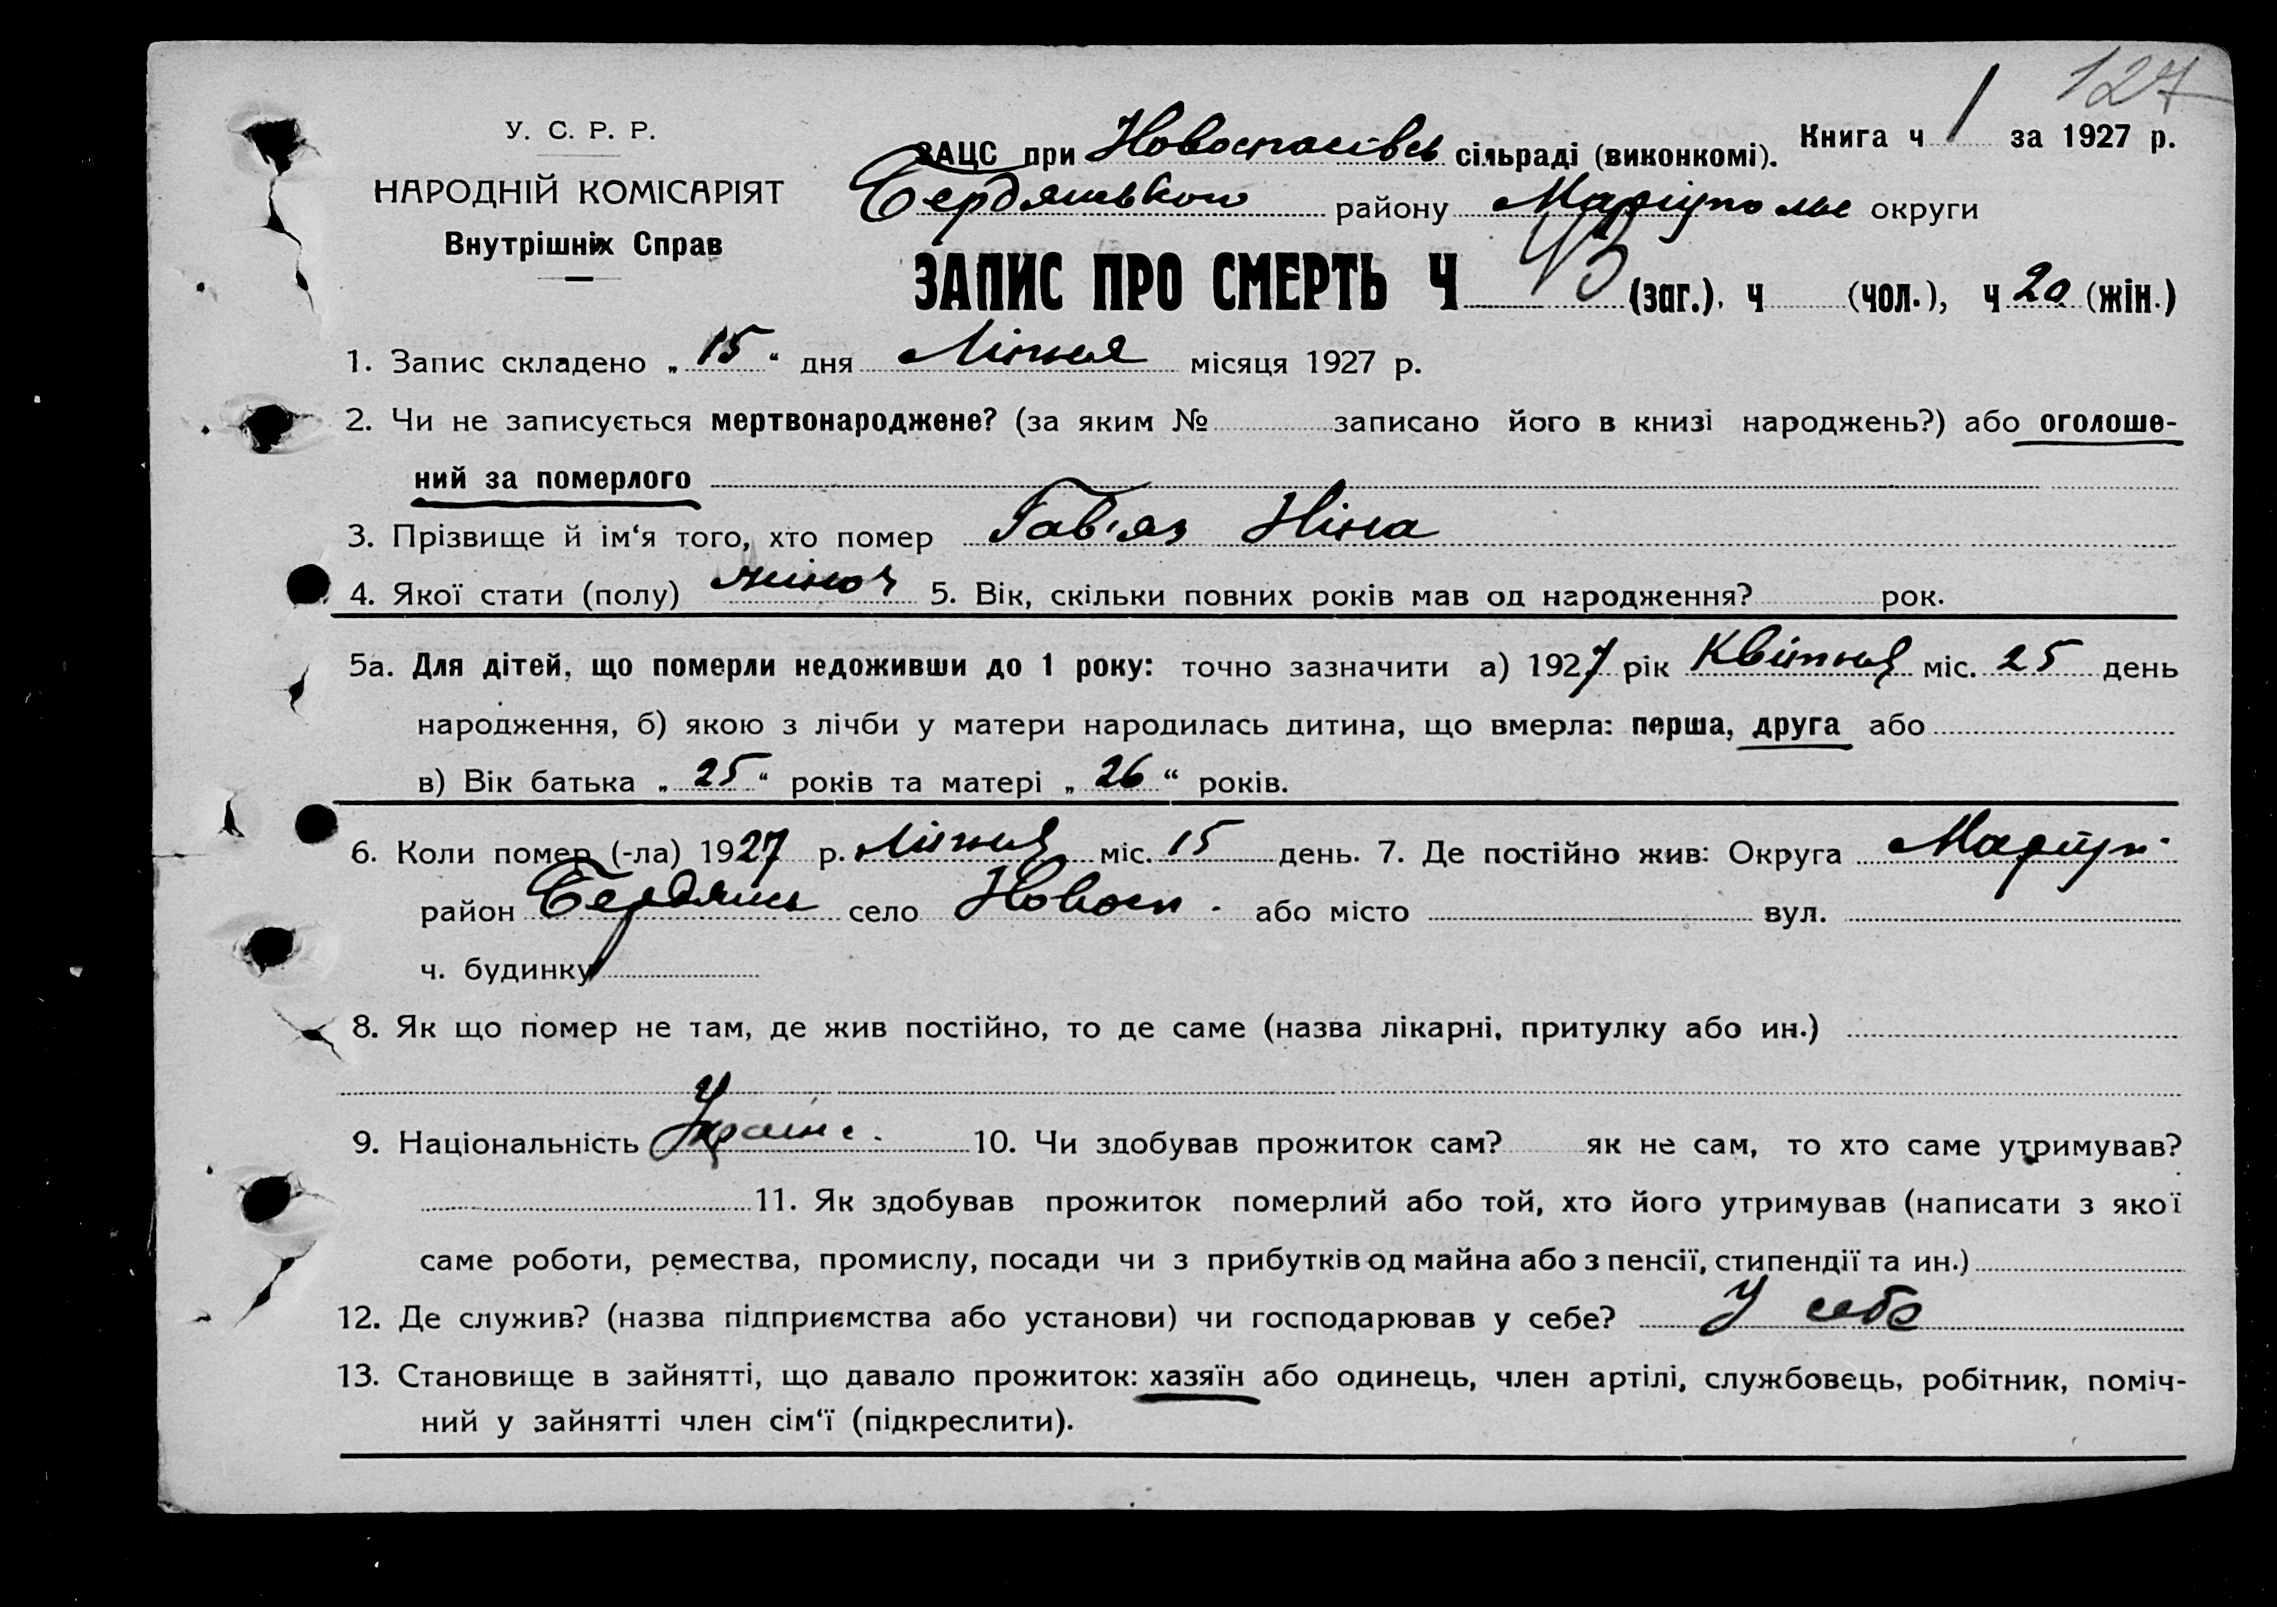 127
У. С. Р. Р.
НАРОДНІЙ КОМІСАРІЯТ
Внутрішніх Справ
ЗАЦС при Новоспасівсь сільраді (виконкомі). Книга ч 1 за 1927 р.
Бердянського району Маріупольс округи
ЗАПИС ПРО СМЕРТЬ Ч 43 (заг.), ч (чол.), ч 20 (жін.)
1. Запис складено „ 15 “ дня Липня місяця 1927 р.
2. Чи не записується мертвонароджене? (за яким № записано його в книзі народжень?) або оголоше-
ний за померлого
3. Прізвище й ім‘я того, хто помер Гав'яз Ніна
4. Якої стати (полу) жіноч 5. Вік, скільки повних років мав од народження? рок.
5а. Для дітей, що померли недоживши до 1 року: точно зазначити а) 1927 рік Квітня міс. 25 день
народження, б) якою з лічби у матери народилась дитина, що вмерла: перша, друга або
в) Вік батька „ 25 “ років та матері „ 26 “ років.
6. Коли помер (-ла) 1927 р. Липня міс. 15 день. 7. Де постійно жив: Округа Маріуп.
район Бердянсь село Новосп. або місто вул.
ч. будинку
8. Як що помер не там, де жив постійно, то де саме (назва лікарні, притулку або ин.)
9. Національність Украінс. 10. Чи здобував прожиток сам? як не сам, то хто саме утримував?
11. Як здобував прожиток померлий або той, хто його утримував (написати з якої
саме роботи, ремества, промислу, посади чи з прибутків од майна або з пенсії, стипендії та ин.)
12. Де служив? (назва підприємства або установи) чи господарював у себе? У себе
13. Становище в зайнятті, що давало прожиток: хазяїн або одинець, член артілі, службовець, робітник, поміч-
ний у зайнятті член сім‘ї (підкреслити).